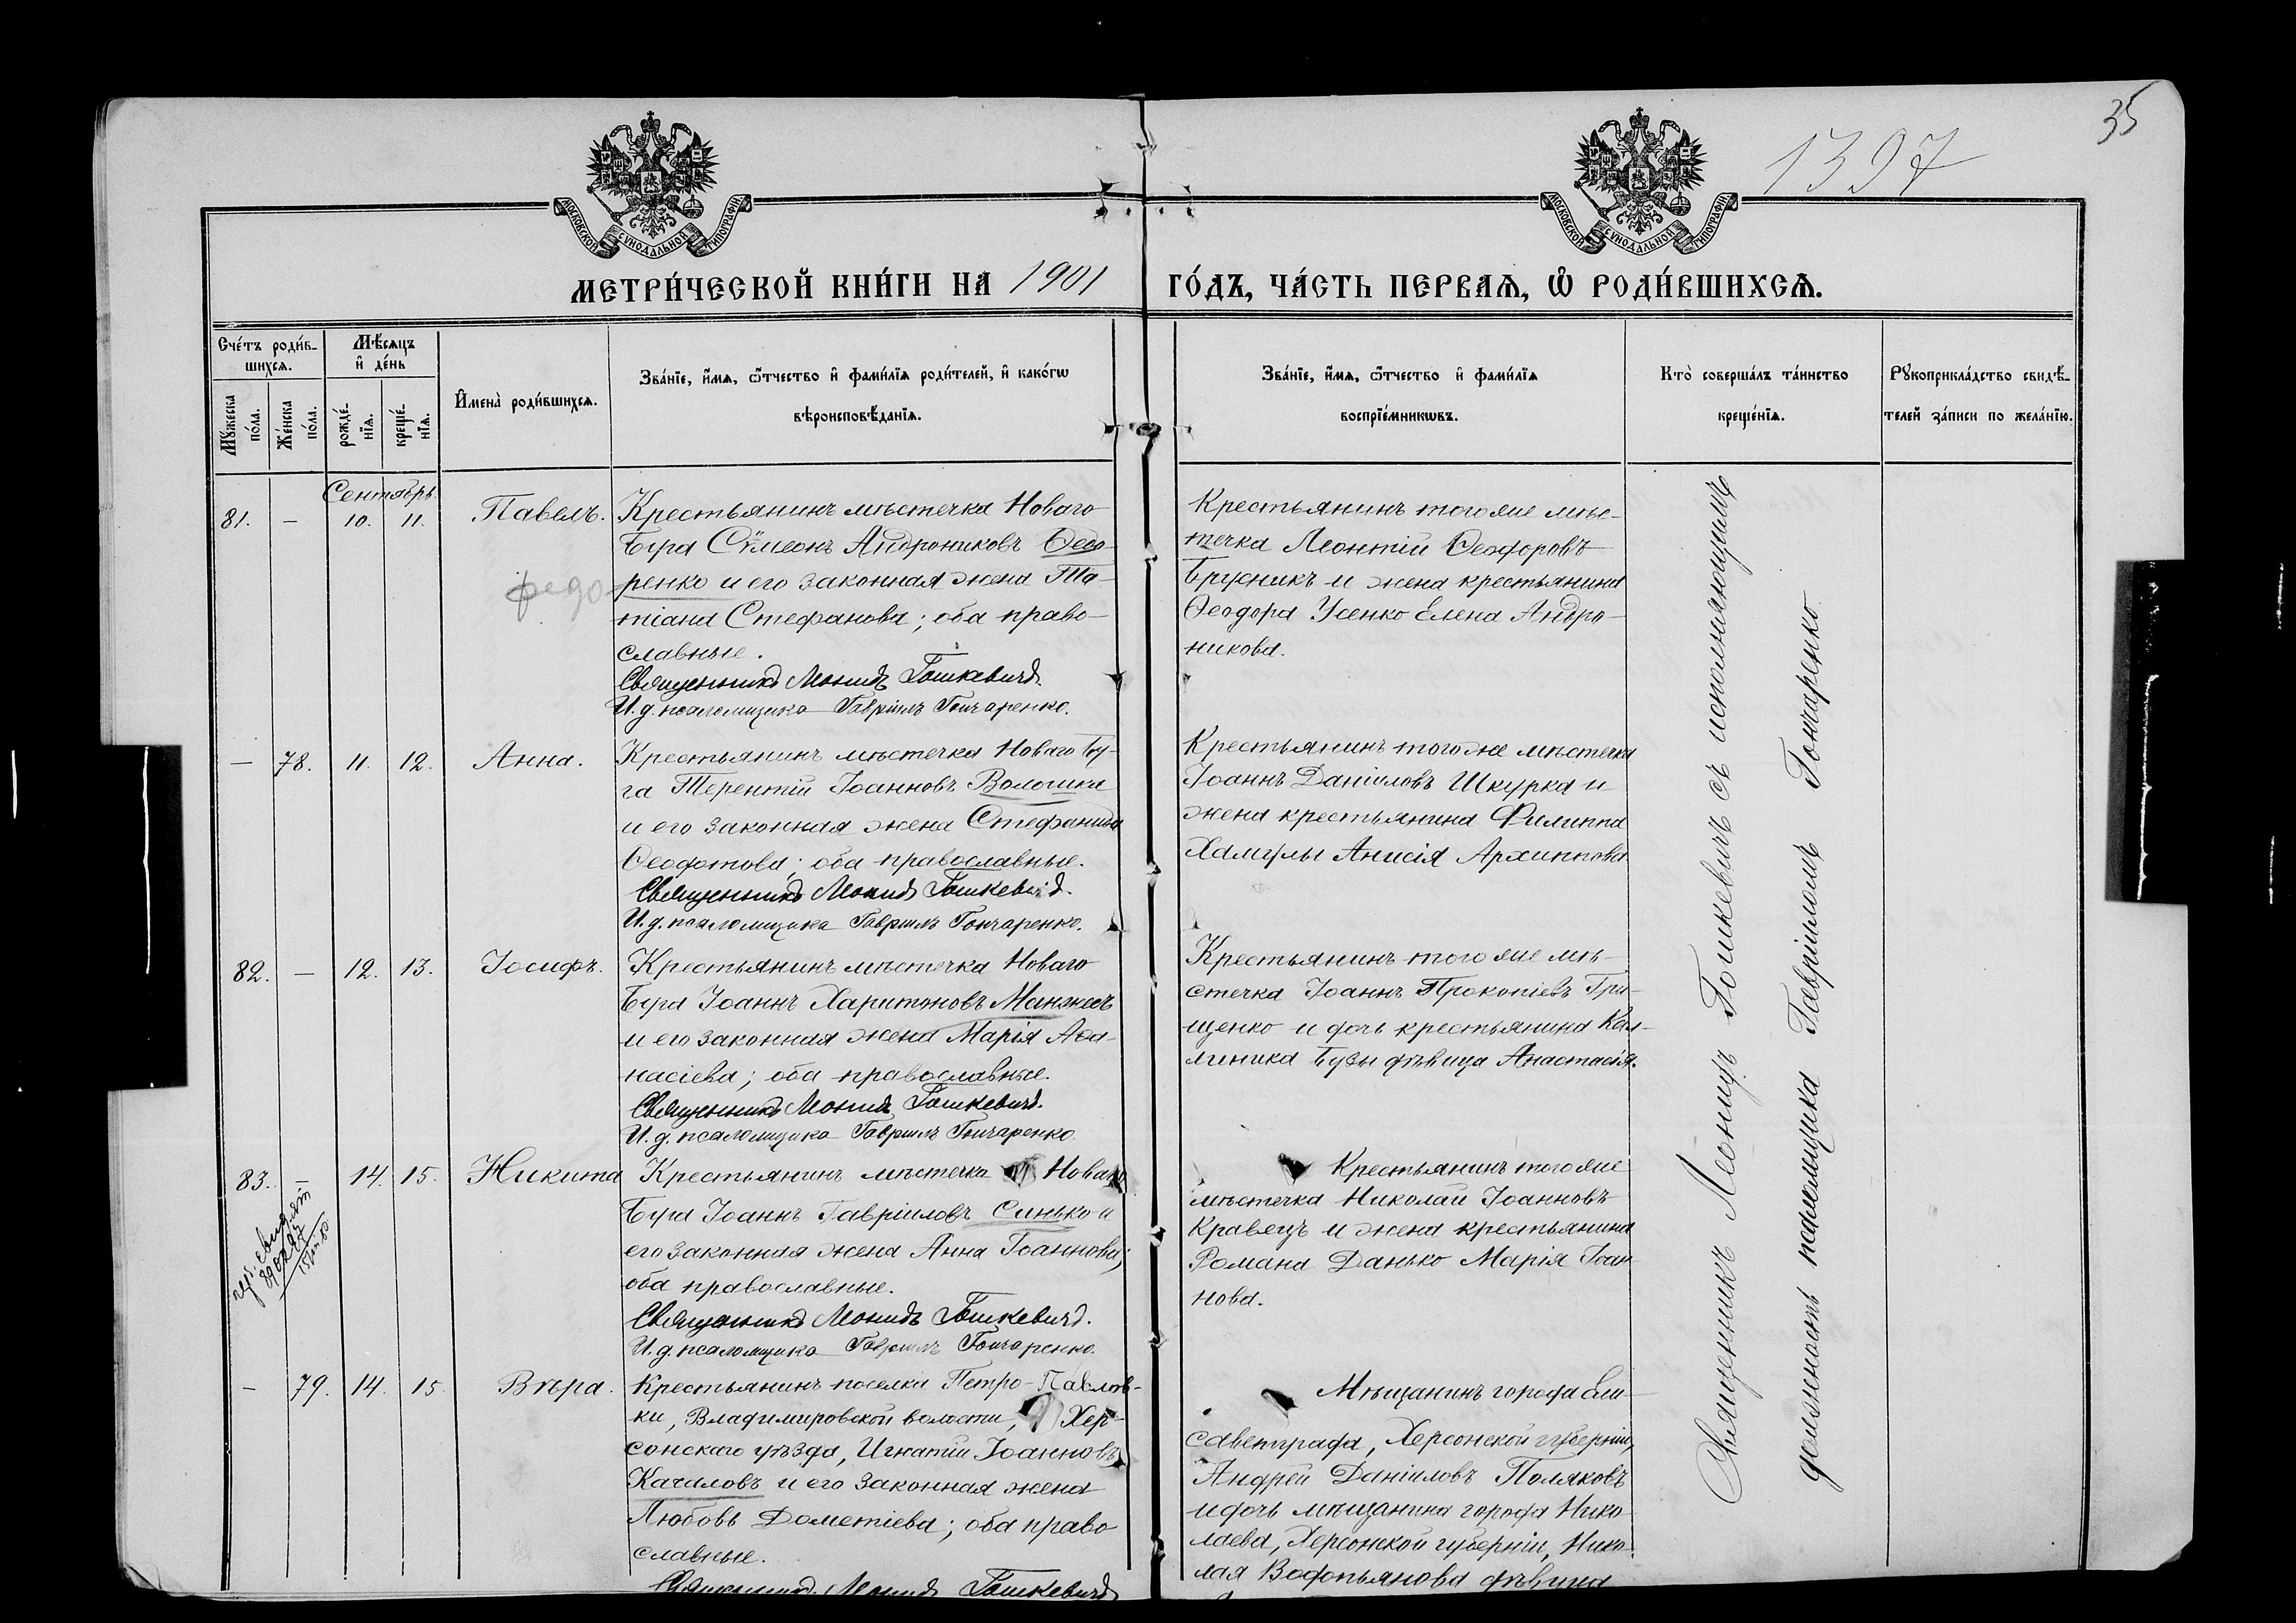 35
1397
МОСКОВСКОЙ СѴНОДАЛЬНОЙ ТИПОГРАФІИ
МОСКОВСКОЙ СѴНОДАЛЬНОЙ ТИПОГРАФІИ
МЕТРИ́ЧЕСКОЙ КНИ́ГИ НА 1901 ГО́ДЪ, ЧА́СТЬ ПЕРВАѦ, Ѽ РОДИ́ВШИХСѦ.
Сче́тъ роди́в-
шихсѧ.
Мꙋ́жеска
по́ла.
Же́нска
по́ла.
Мѣ́сѧцъ
и҆ де́нь
рожде́-
нїѧ.
креще́-
нїѧ.
И҆мена̀ роди́вшихсѧ.
Зва́нїе, и҆́мѧ, ѻ҆́тчество и҆ фами́лїѧ роди́телей, и҆ како́гѡ
вѣроисповѣ́данїѧ.
Зва́нїе, и҆́мѧ, ѻ҆́тчество и҆ фами́лїѧ
воспрїе́мникѡвъ.
Кто̀ соверша́лъ та́инство
креще́нїѧ.
Рꙋкоприкла́дство свидѣ́-
телей за́писи по жела́нїю.
Сентябрь.
81. — 10. 11. Павелъ.
Крестьянинъ мѣстечка Новаго
Буга Сѵмеонъ Андрониковъ Ѳедо-
ренко и его законная жена Та-
тіана Стефанова; оба право-
славные.
Священникъ Леонидъ Гошкевичъ.
И. д. псаломщика Гавріилъ Гончаренко.
федо
Крестьянинъ того же мѣс-
течка Леонтій Ѳеодоровъ
Брусникъ и жена крестьянина
Ѳеодора Усенко Елена Андро-
никова.
— 78. 11. 12. Анна.
Крестьянинъ мѣстечка Новаго Бу-
га Терентій Іоанновъ Волошка
и его законная жена Стефанида
Ѳеодотова; оба православные.
Священникъ Леонидъ Гошкевичъ.
И. д. псаломщика Гавріилъ Гончаренко.
Крестьянинъ того же мѣстечка
Іоаннъ Даніиловъ Шкурка и
жена крестьянина Филиппа
Хамулы Анисія Архиппова.
82. — 12. 13. Іосифъ.
Крестьянинъ мѣстечка Новаго
Буга Іоаннъ Харитоновъ Манжосъ
и его законная жена Марія Аѳа-
насіева; оба православные.
Священникъ Леонидъ Гошкевичъ.
И. д. псаломщика Гавріилъ Гончаренко.
Крестьянинъ того же мѣ-
стечка Іоаннъ Прокопіевъ Гри-
щенко и дочь крестьянина Кал-
линика Бузы дѣвица Анастасія.
83. — 14. 15. Никита
Крестьянинъ мѣстечка Новаго
Буга Іоаннъ Гавріиловъ Синько и
его законная жена Анна Іоаннова;
оба православные.
Священникъ Леонидъ Гошкевичъ.
И. д. псаломщика Гавріилъ Гончаренко.
Крестьянинъ того же
мѣстечка Николай Іоанновъ
Кравецъ и жена крестьянина
Романа Данько Марія Іоан-
нова.
— 79. 14. 15. Вѣра.
Крестьянинъ поселка Петро-Павлов-
ки, Владимировской волости, Хер-
сонскаго уѣзда, Игнатій Іоанновъ
Качаловъ и его законная жена
Любовь Дометіева; оба право
славные.
Священникъ Леонидъ Гошкевичъ
Мѣщанинъ города Ели-
саветграда, Херсонской губерніи,
Андрей Даніиловъ Поляковъ
и дочь мѣщанина города Нико-
лаева, Херсонской губерніи, Нико-
лая Водопьянова дѣвица
Священникъ Леонидъ Гошкевичъ съ исполняющимъ
должность псаломщика Гавріиломъ Гончаренко